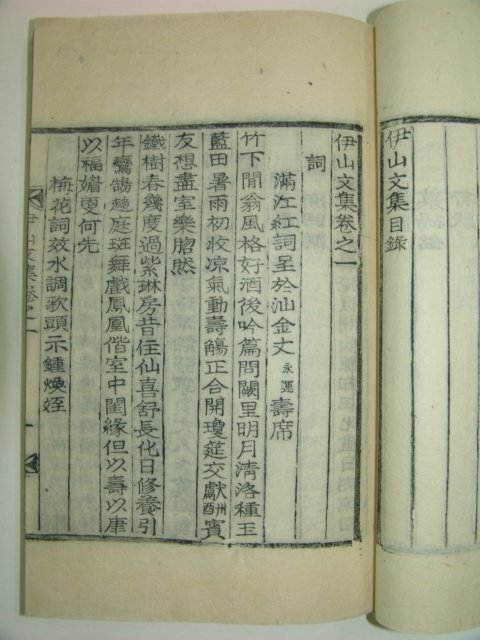 伊山文集目錄
伊山文集卷之一
詞
滿江紅詞呈於汕金丈永運壽席
竹下閒翁風格好酒後吟篇問闕里明月淸洛種玉
藍田暑雨初收凉氣動壽觴正合開瓊筵交獻酬賓
友想盡室樂脗然
鐵樹春幾度過紫琳房昔住仙喜舒長化日修養引
年鸞鵠趍庭斑舞戲鳳凰偕室中閨緣但以壽以康
以福嬗更何先
梅花詞效水調歌頭示鍾煥姪
伊山文集卷之一